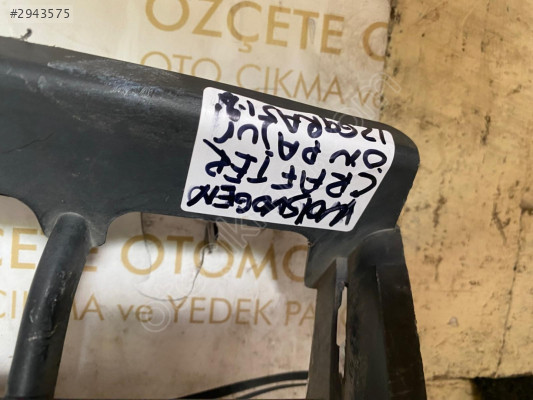 #2943575
ÖZÇETE O
OTO ÇIKMA ve
VOLSVOGEN
CRAFTER
ÖN PAJUL
IZGARASI
ÇETE OTOMO
ÇIKMA ve YEDEK PA